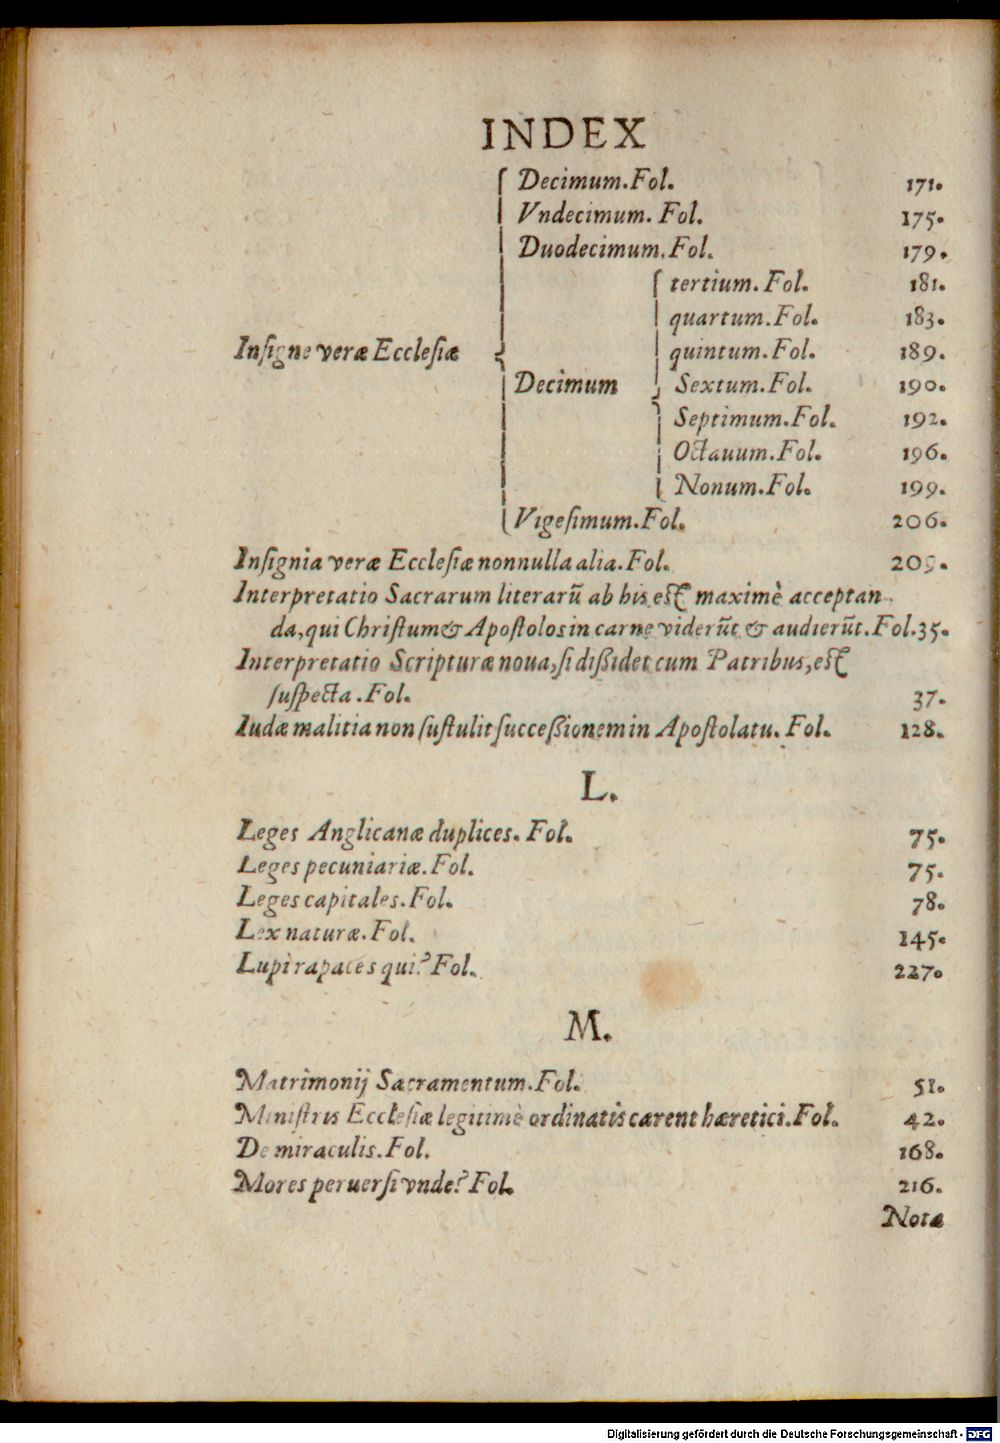 INDEX
Decimum. Fol. 171.
Vndecimum. Fol. 175.
Duodecimum. Fol. 179.
tertium. Fol. 181.
quartum. Fol. 183.
Inſigne veræ Eccleſiæ
quintum. Fol. 189.
Decimum
Sextum. Fol. 190.
Septimum. Fol. 192.
Octauum. Fol. 196.
Nonum. Fol. 199.
Vigeſimum. Fol. 206.
Inſignia veræ Eccleſiæ nonnulla alia. Fol. 209.
Interpretatio Sacrarum literarũ ab his eſt maximè acceptan
da, qui Chriſtum & Apoſtolos in carne viderũt & audierũt. Fol. 35.
Interpretatio Scripturæ noua, ſi dißidet cum Patribus, eſt
ſuſpecta. Fol. 37.
Iudæ malitia non ſuſtulit ſucceßionem in Apoſtolatu. Fol. 128.
L.
Leges Anglicanæ duplices. Fol. 75.
Leges pecuniariæ. Fol. 75.
Leges capitales. Fol. 78.
Lex naturæ. Fol. 145.
Lupi rapaces qui? Fol. 227.
M.
Matrimonij Sacramentum. Fol. 51.
Miniſtris Eccleſiæ legitimè ordinatis carent hæretici. Fol. 42.
De miraculis. Fol. 168.
Mores peruerſi vnde? Fol. 216.
Notæ
Digitalisierung gefördert durch die Deutsche Forschungsgemeinschaft - DFG